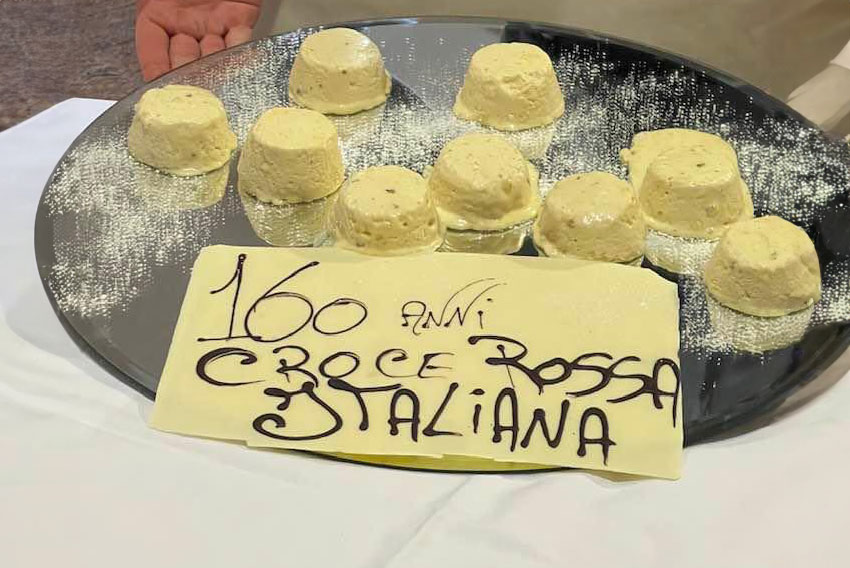 160 ANNi
CROCE ROSSA
ITALiANA